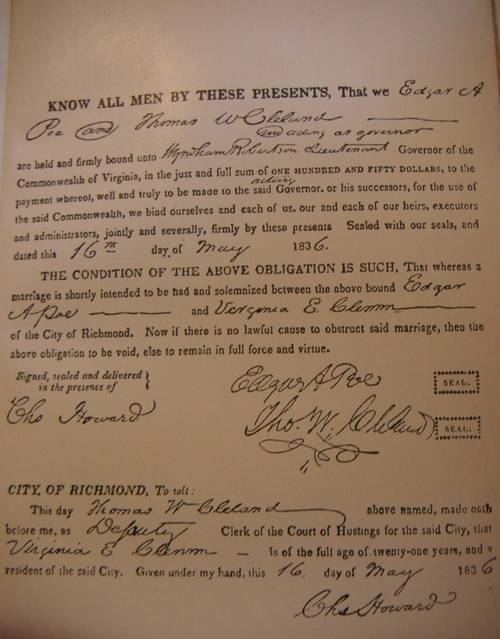 KNOW ALL MEN BY THESE PRESENTS, That we Edgar A
Poe and Thomas W Cleland
and acting as governor
are held and firmly bound unto Wyndham Robertson Lieutenant Governor of the
Commonwealth of Virginia, in the just and full sum of ONE HUNDRED AND FIFTY DOLLARS, to the
payment whereof, well and truly to be made to the said Governor, or his successors, for the use of
the said Commonwealth, we bind ourselves and each of us, our and each of our heirs, executors
and administrators, jointly and severally, firmly by these presents Sealed with our seals, and
dated this 16th day of May 1836.
THE CONDITION OF THE ABOVE OBLIGATION IS SUCH, That whereas a
marriage is shortly intended to be had and solemnized between the above bound Edgar
A Poe and Virginia E. Clemm
of the City of Richmond. Now if there is no lawful cause to obstruct said marriage, then the
above obligation to be void, else to remain in full force and virtue.
Signed, sealed and delivered }
in the presence of
Edgar A Poe SEAL.
Chs Howard
Tho. W. Cleland SEAL.
CITY OF RICHMOND, To wit:
This day Thomas W Cleland above named, made oath
before me, as Deputy Clerk of the Court of Hustings for the said City, that
Virginia E Clemm is of the full age of twenty-one years, and a
resident of the said City. Given under my hand, this 16 day of May 1836
Chs Howard